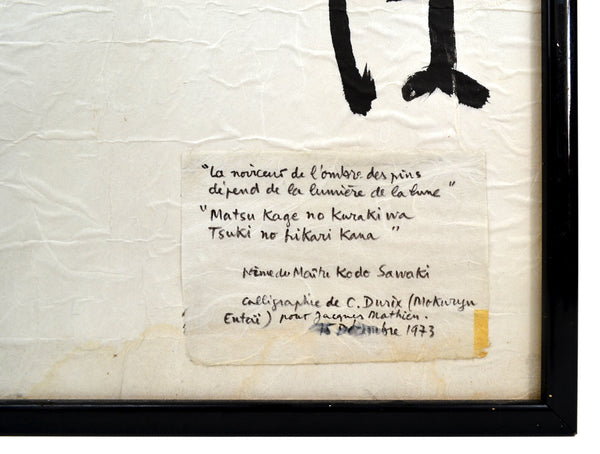 "La noirceur de l'ombre des pins
dépend de la lumière de la lune"
"Matsu Kage no Kuraki wa
Tsuki no hikari Kana"
poème du Maître Kodo Sawaki
Calligraphie de C. Durix (Mokuryu
Entaï) pour Jacques Mathieu.
15 Décembre 1973